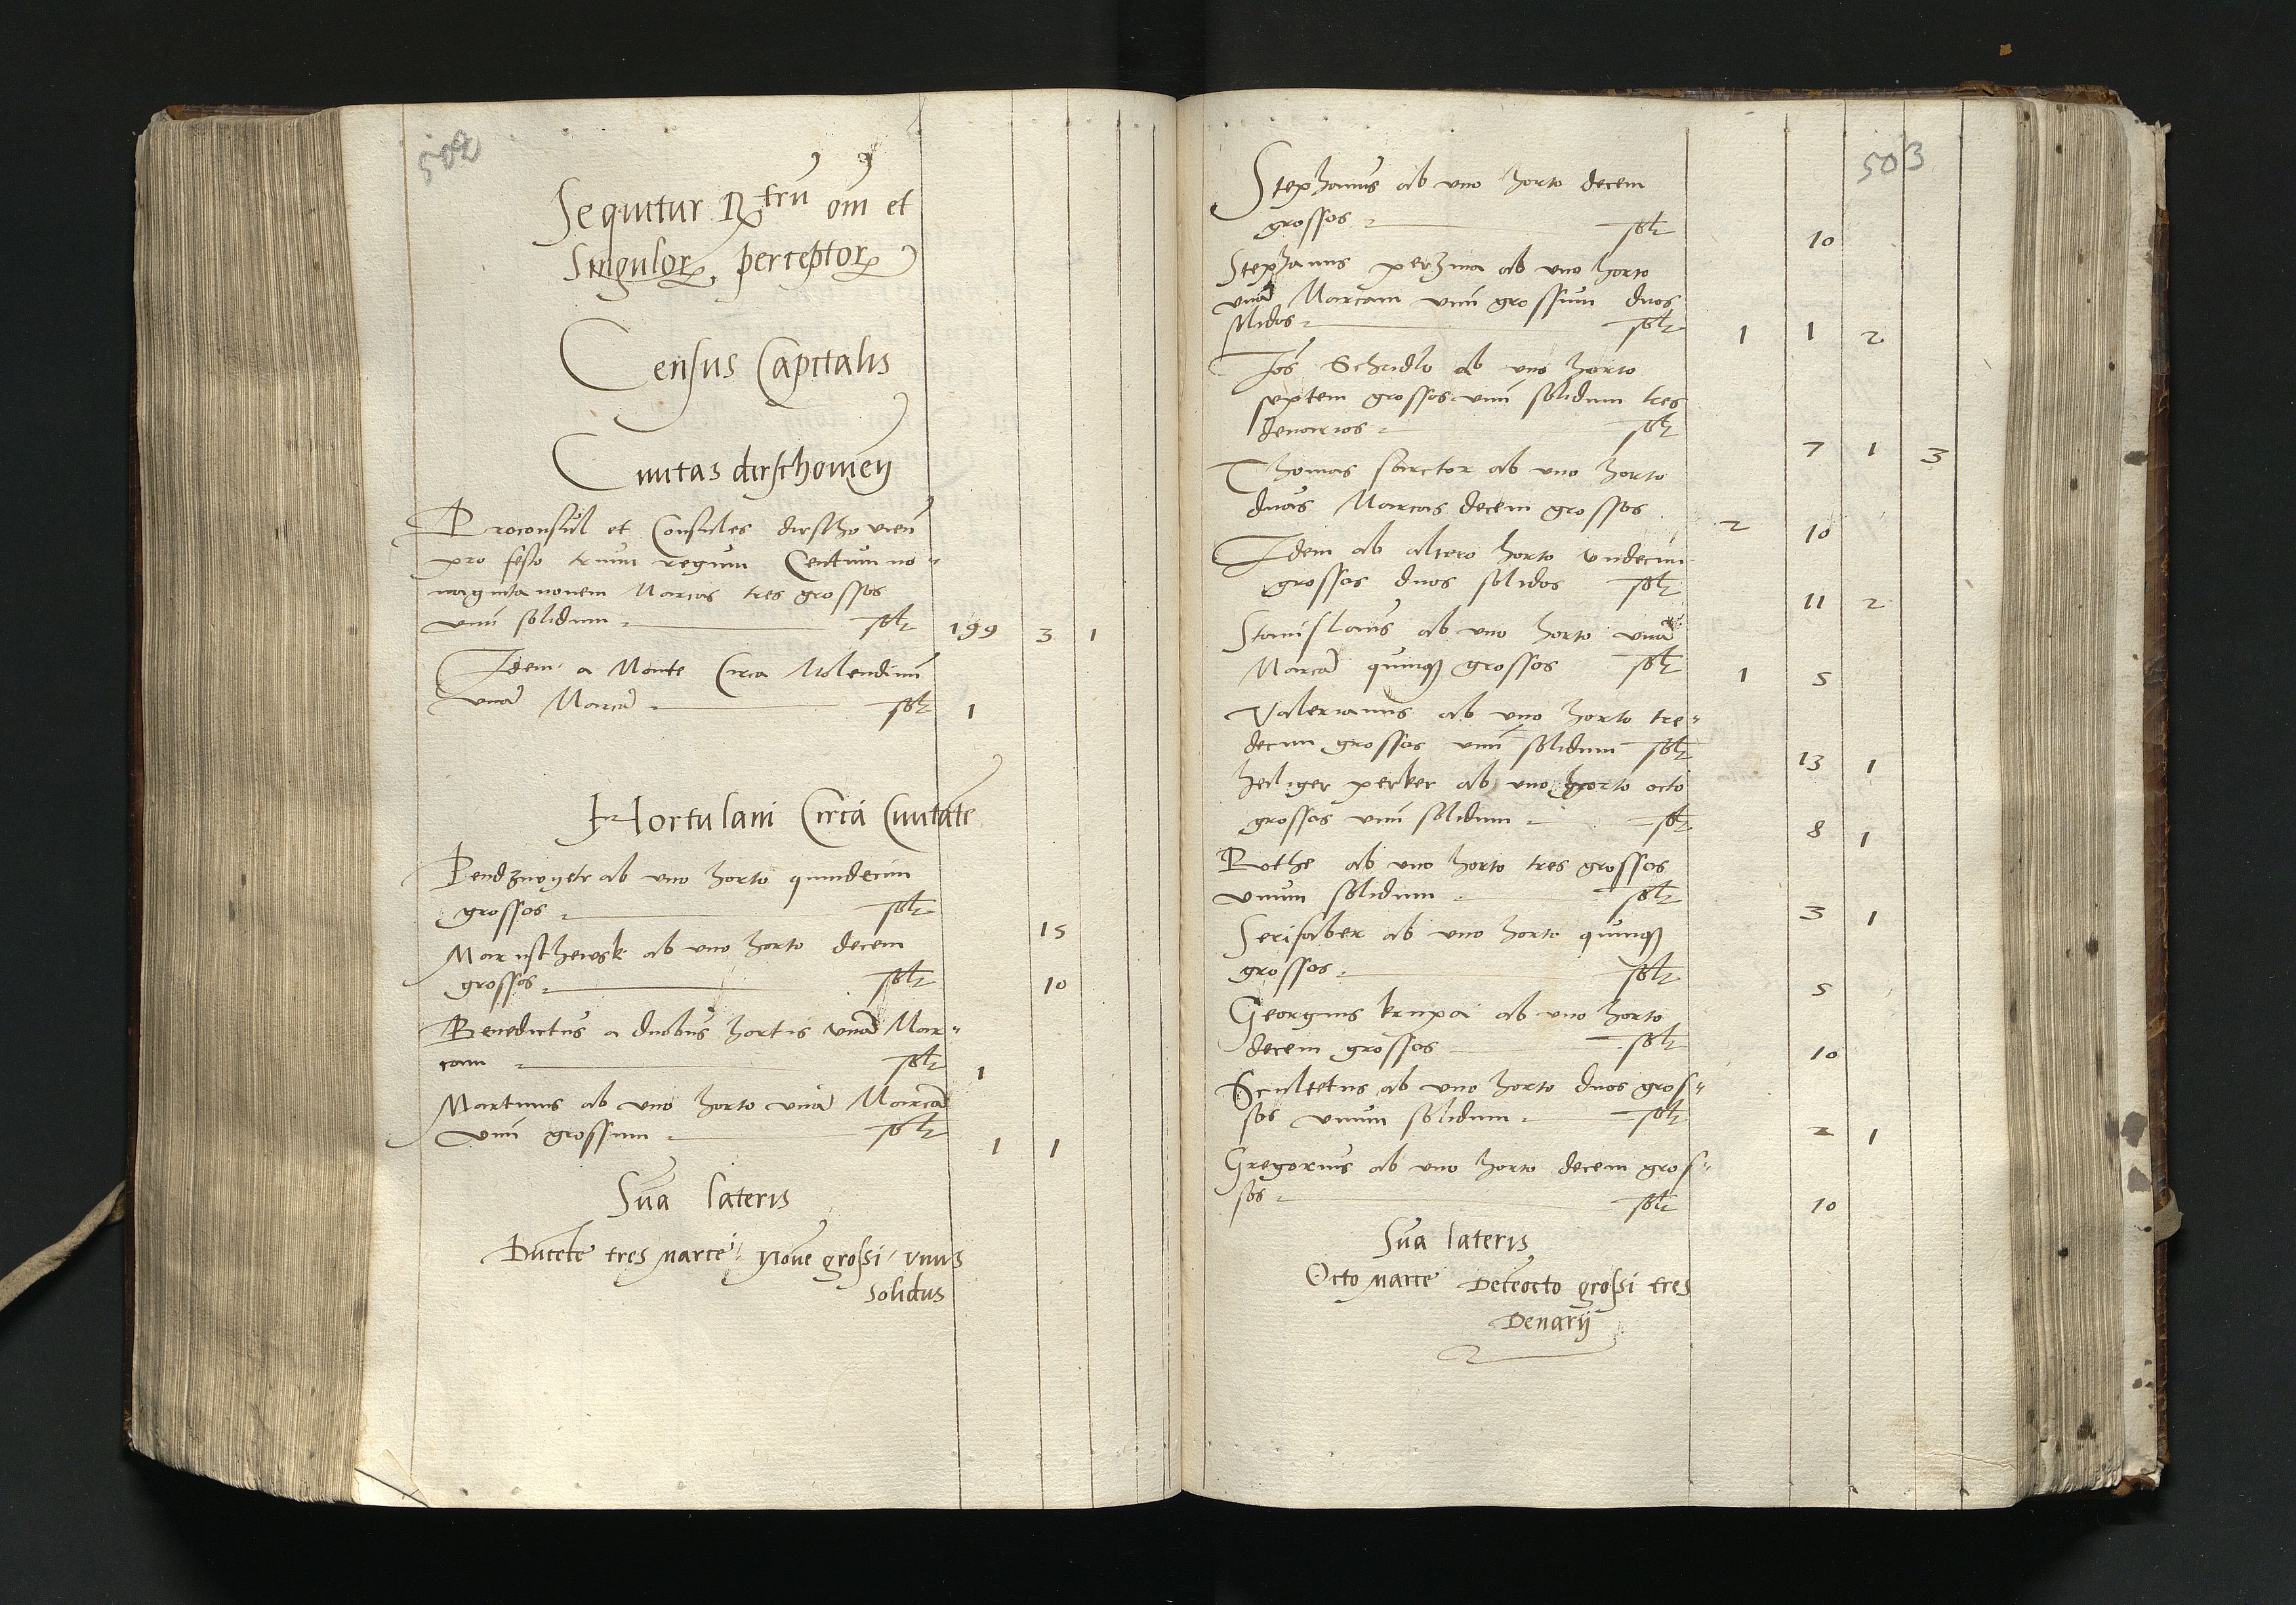 502
Sequitur Rtrū om̄ et
Singulor perceptor
Census Capitalis
Civitas dirschovień
Proconsul et Consules dirschovień
pro festo trium regum Centum no-
naginta novem Marcas tres grossos
unū solidum solt 199 3 1
Idem a Monte Circa Molendinū
unā Marcā solt 1
Hortulani Circa Civitatē
ab uno horto quindecim
grossos solt 15
Maruschewsk ab uno horto decem
grossos solt 10
Benedictus a duobus hortis unā Mar-
cam solt 1
Martinus ab uno horto unā Marcā
unū grossum solt 1 1
Sūa lateris
Ducētē tres marcē novē grossi unus
Solidus
503
Stephanus ab uno horto decem
grossos solt 10
Stephanus perzina ab uno horto
unā Marcam unū grossum duos
solidos solt 1 1 2
Jos Schidlo ab uno horto
septem grossos unū solidum tres
denarios solt 7 1 3
Thomas sartor ab uno horto
duas Marcas decem grossos 2 10
Idem ab altero horto undecim
grossos duos solidos solt 11 2
Stanislaus ab uno horto unā
Marcā quinq grossos solt 1 5
Valerianus ab uno horto tre-
decim grossos unū solidum solt 13 1
heiliger perker ab uno horto octo
grossos unū solidum solt 8 1
Rothe ab uno horto tres grossos
unum solidum solt 3 1
Serifaber ab uno horto quinq
grossos solt 5
Georgius krupa ab uno horto
decem grossos solt 10
Scultetus ab uno horto duos gros-
sos unum solidum solt 2 1
Gregorius ab uno horto decem gros-
sos solt 10
Sūa lateris
Octo marce Decēocto grossi tres
Denarij